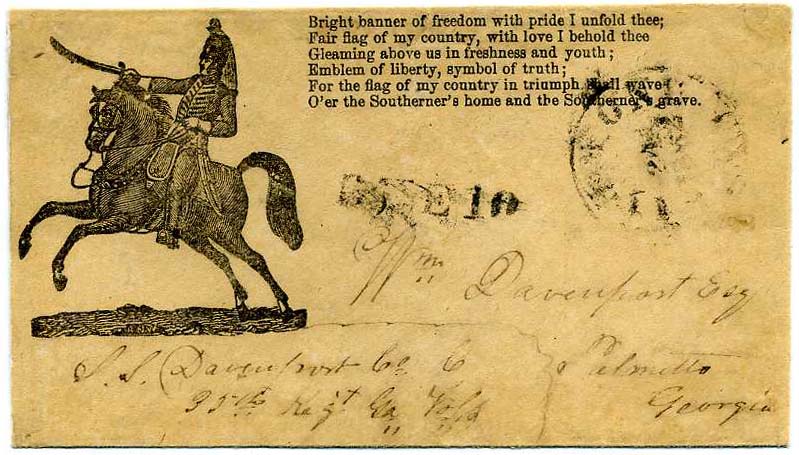 Bright banner of freedom with pride I unfold thee;
Fair flag of my country, with love I behold thee
Gleaming above us in freshness and youth;
Emblem of liberty, symbol of truth;
For the flag of my country in triumph shall wave
O'er the Southerner's home and the Southerner's grave.
10
Wm Davenport Esq
S. S. Davenport Co. C
Palmetto
35th Reg't Ga Vols
Georgia